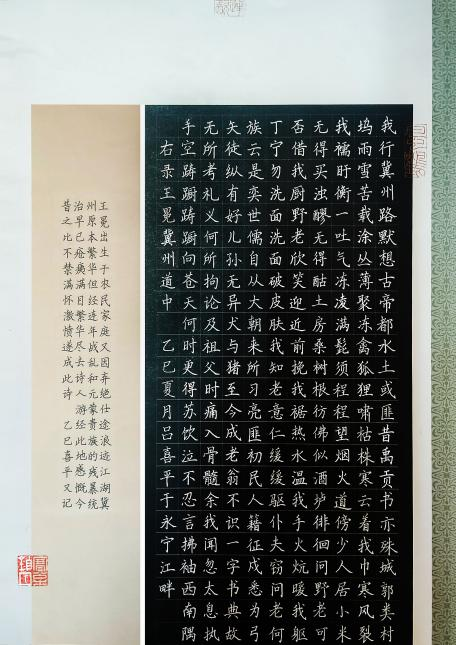 我行冀州路默想古帝都水土或匪昔禹贡书亦殊城郭类村
坞雨雪苦载涂丛薄聚冻禽狐狸啸枯株寒云着我巾寒风裂
我襦盱衡一吐气冻凌满髭须程程望烟火道傍少人居小米
无得买浊醪无得酤土房桑树根仿佛似酒垆徘徊问野老可
否借我厨野老欣笑迎近前挽我裾热水温我手火炕暖我躯
丁宁勿洗面洗面破皮肤我知老意仁缓缓驱仆夫窃问老何
族云是奕世儒自从大朝来所习亮匪初民人籍征戍悉为弓
矢徒纵有好儿孙无异犬与猪至今成老翁不识一字书典故
无所考礼义何所拘论及祖父时痛入骨髓余我闻忽太息执
手空踌蹰踌蹰向苍天何时更得苏饮泣不忍言拂袖西南隅
右录王冕冀州道中 乙巳夏月吕喜平于永宁江畔
王冕出生于农民家庭又因弃绝仕途浪迹江湖冀
州原本繁华但经连年战乱和元蒙贵族的残暴统
治早已疮痍满目繁华尽去诗人游经此地感慨今
昔之比不禁满怀激愤遂成此诗 乙巳喜平又记